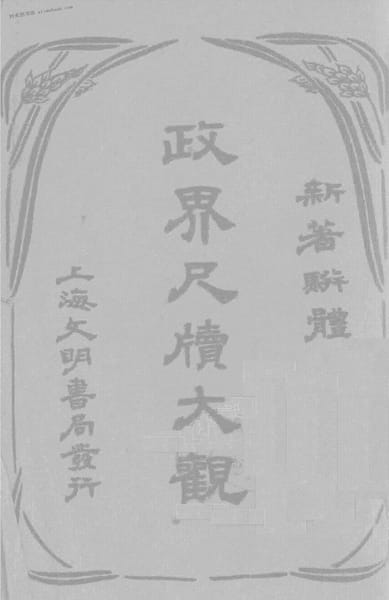 新著駢體
政界尺牘大觀
上海文明書局發行